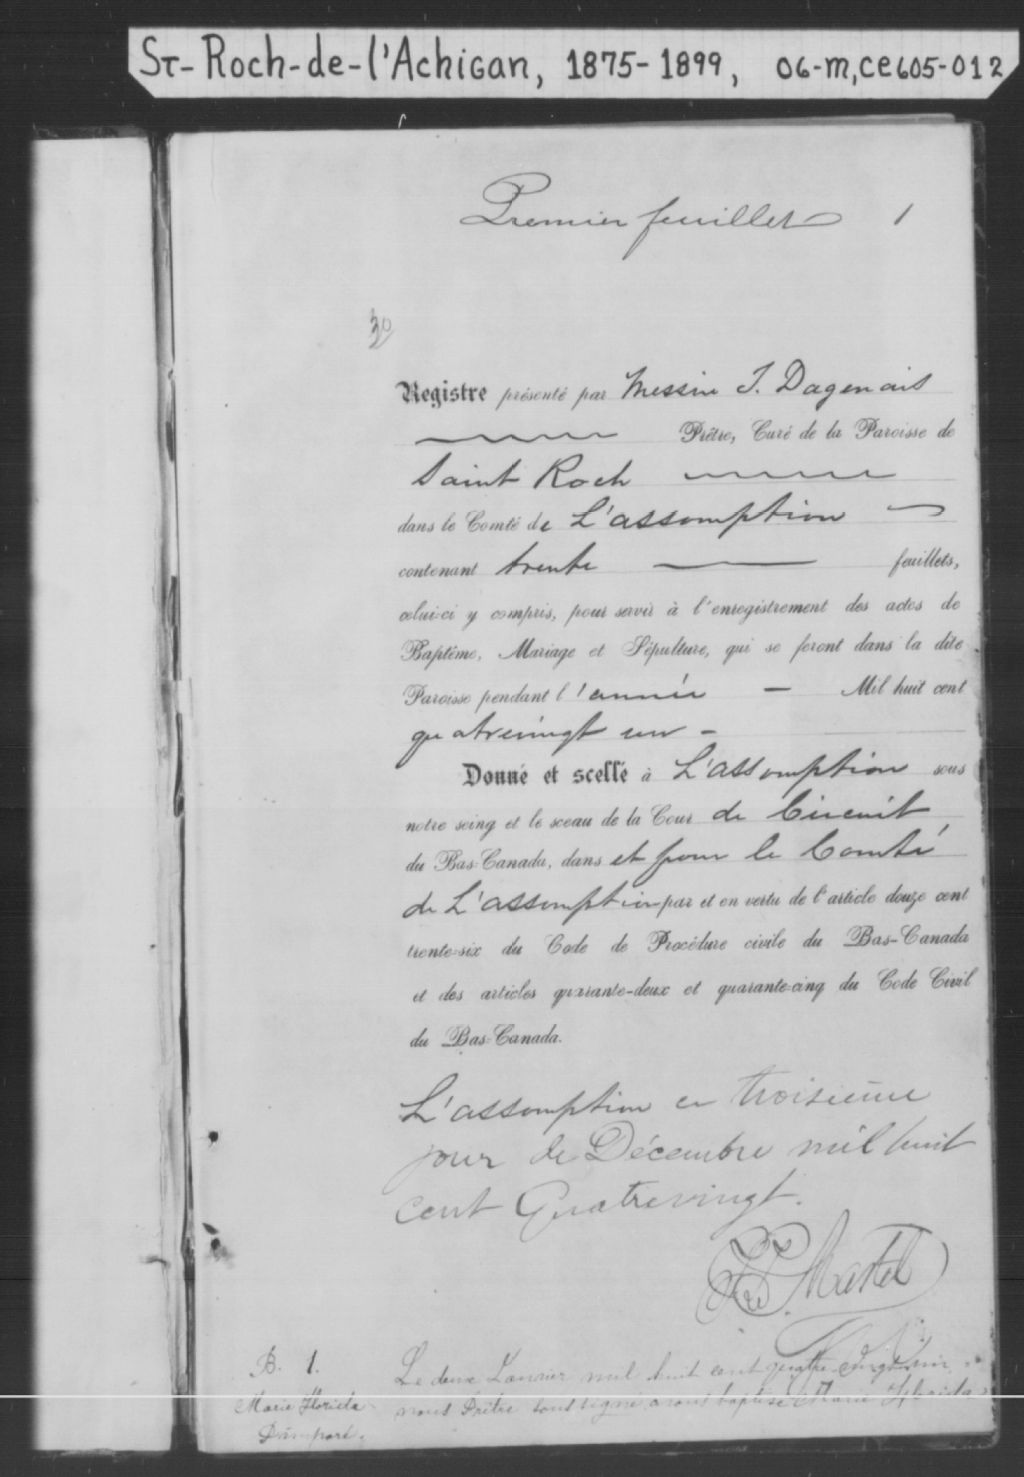 St-Roch-de-l'Achigan, 1875-1899, 06-M,CE605-012
Premier feuillet 1
30
Registre présenté par Messire J. Dagenais
Prêtre, Curé de la Paroisse de
Saint Roch
dans le Comté de L'assomption
contenant trente feuillets,
celui-ci y compris, pour servir à l'enregistrement des actes de
Baptême, Mariage et Sépulture, qui se feront dans la dite
Paroisse pendant l'année — Mil huit cent
quatrevingt un -
Donné et scellé à L'assomption sous
notre seing et le sceau de la Cour de Circuit
du Bas-Canada, dans et pour le Comté
de L'assomption par et en vertu de l'article douze cent
trente-six du Code de Procédure civile du Bas-Canada
et des articles quarante-deux et quarante-cinq du Code Civil
du Bas-Canada.
L'assomption ce troisième
jour de Décembre mil huit
cent Quatrevingt.
Martel
B. 1. Le deux Janvier mil huit cent quatre vingt un
Marie nous Prêtre soussigné avons baptisé Marie